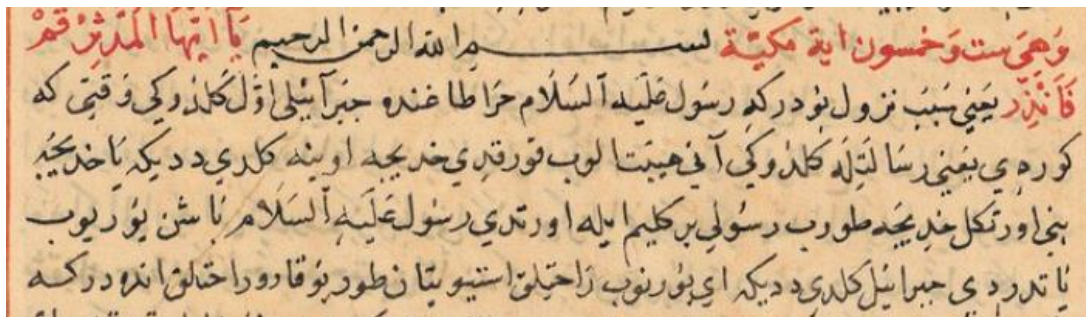 وَهِيَ ست وَخمسون اية مكيّة بسم الله الرحمن الرحيم يَا اَيُّهَا الْمُدَّثِّرُ قُمْ
فَاَنْذِرْ يَعْنِي سَبَبِ نزول بُودركه رسُول عَلَيْهِ اَلسَّلَام حرا طاغنده جبرآئيلى اوّل كلدوكى وقتى كه
كوره ي يعني رسَالتِلَه كلدوكى آني هيبتا لوب قورقدي خديجه اوينه كلدي دديكه يَا خديجَه
بنى اورتكل خديجَه طورب رسُولي بر كليم ايله اورتدي رسول عَلَيْهِ اَلسَّلَام بَاشن بُوريوب
يَاتدرد ي جبرائيل كلدي دديكه اي بُورنوب رَاحتلق استيو يتان طور يوقارو راحتلق انده دركه